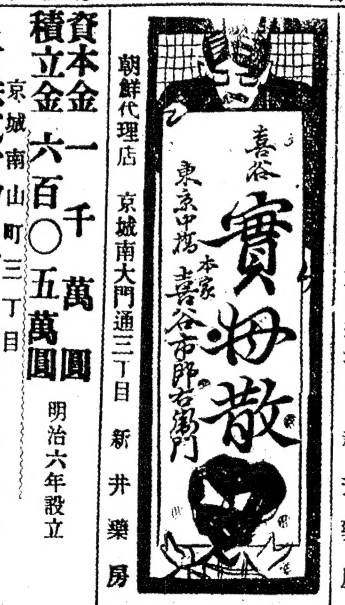 喜谷
實母散
本家
東京中橋 喜谷市郎右衛門
朝鮮代理店 京城南大門通三丁目 新井藥房
資本金一千萬圓
積立金六百〇五萬圓
明治六年設立
京城南山町三丁目